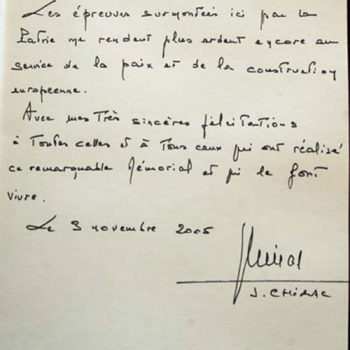 Les épreuves surmontées ici par la
Patrie me rendent plus ardent encore au
service de la paix et de la construction
européenne.
Avec mes Très sincères félicitations
à Toutes celles et à Tous ceux qui ont réalisé
ce remarquable Mémorial et qui le font
vivre.
Le 9 novembre 2005
J. CHIRAC